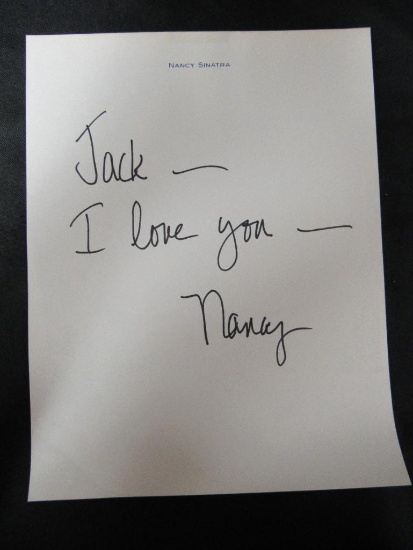 NANCY SINATRA
Jack —
I love you —
Nancy